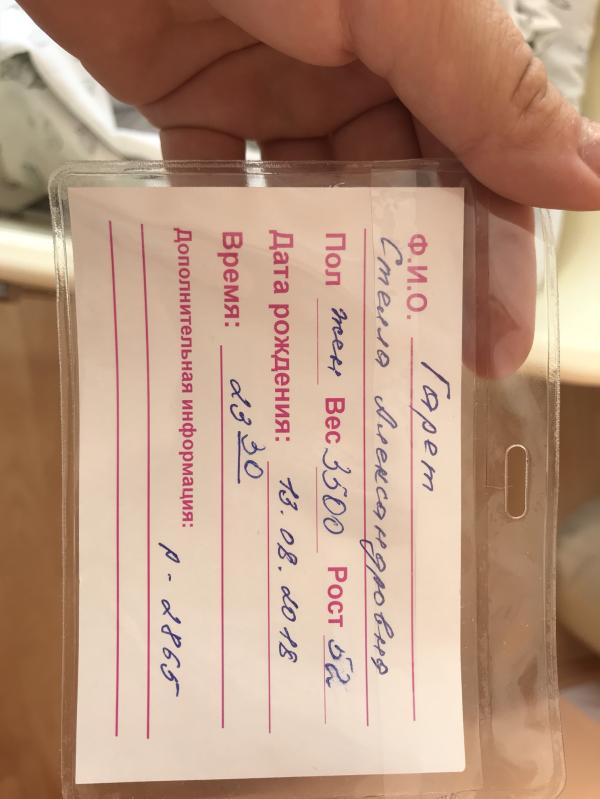 Ф.И.О. Гарет
Стелла Александровна
Пол жен Вес 3500 Рост 52
Дата рождения: 13.08.2018
Время: 23 30
Дополнительная информация:
р-2865